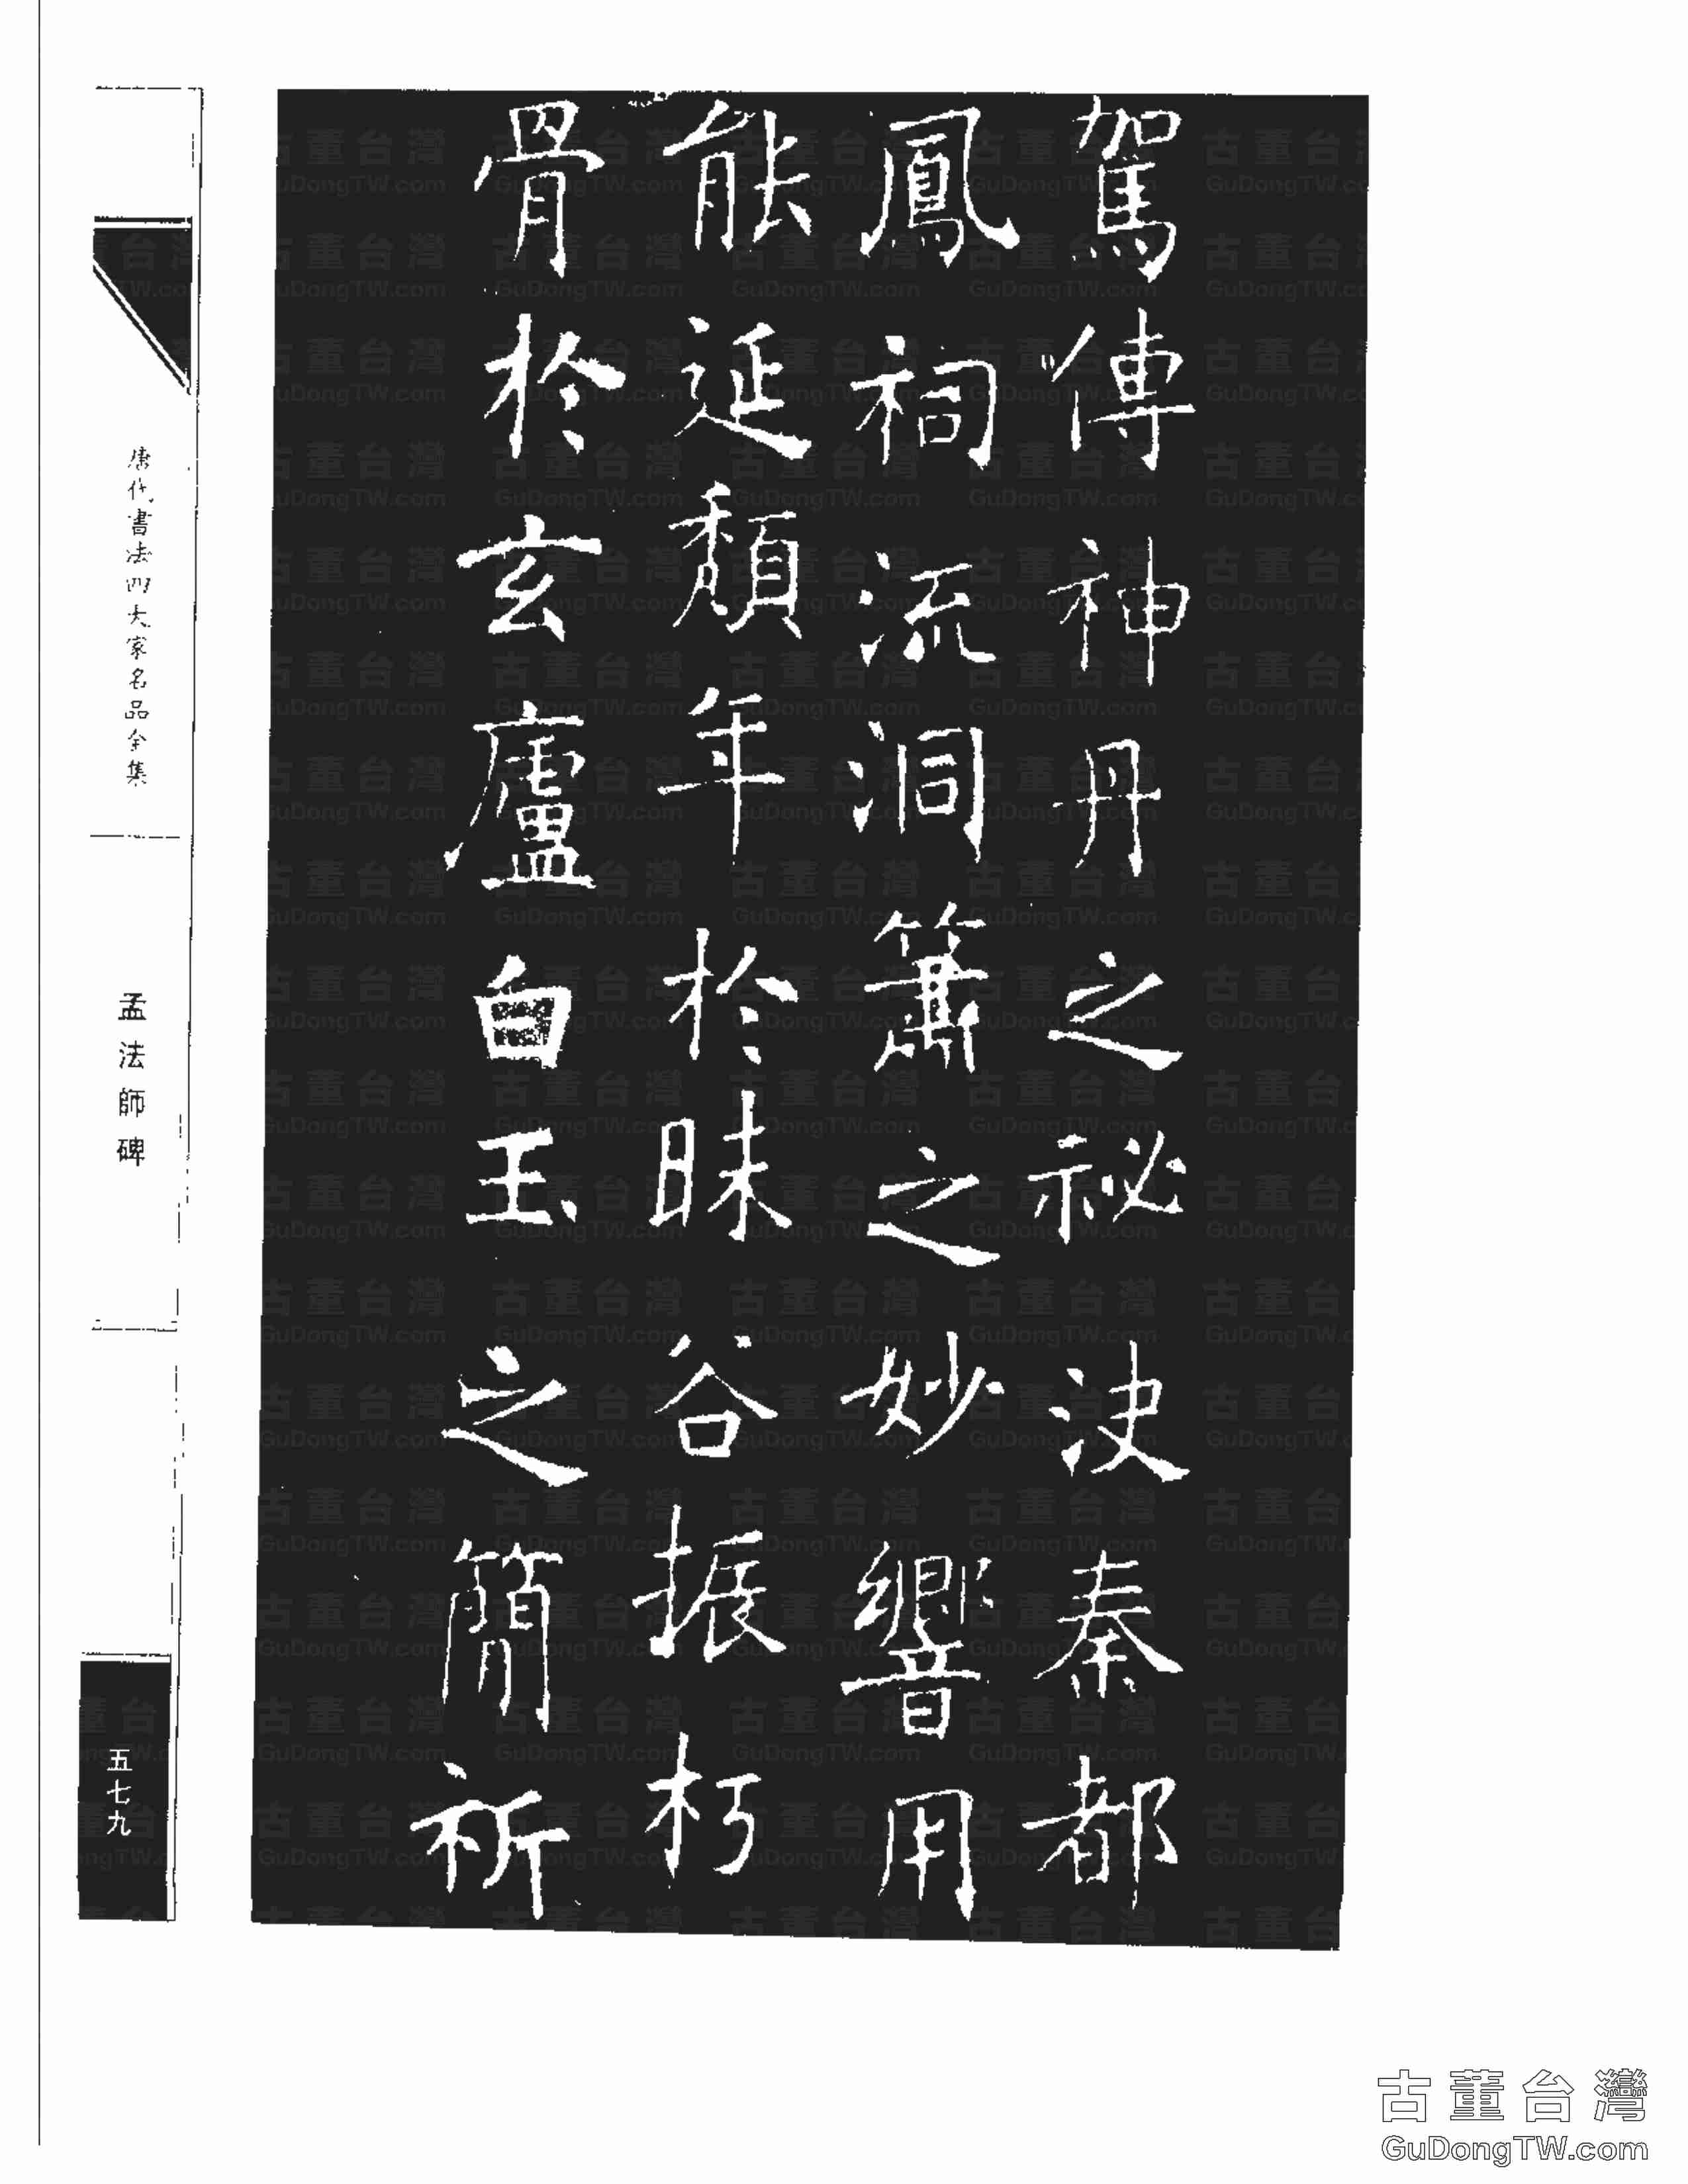 駕傳神丹之祕決秦都
鳳祠流洞簫之妙響用
能延頹年於昧谷振朽
骨於玄廬白玉之簡祈
唐代書法四大家名品全集
孟法師碑
五七九
古董台灣
GuDongTW.com